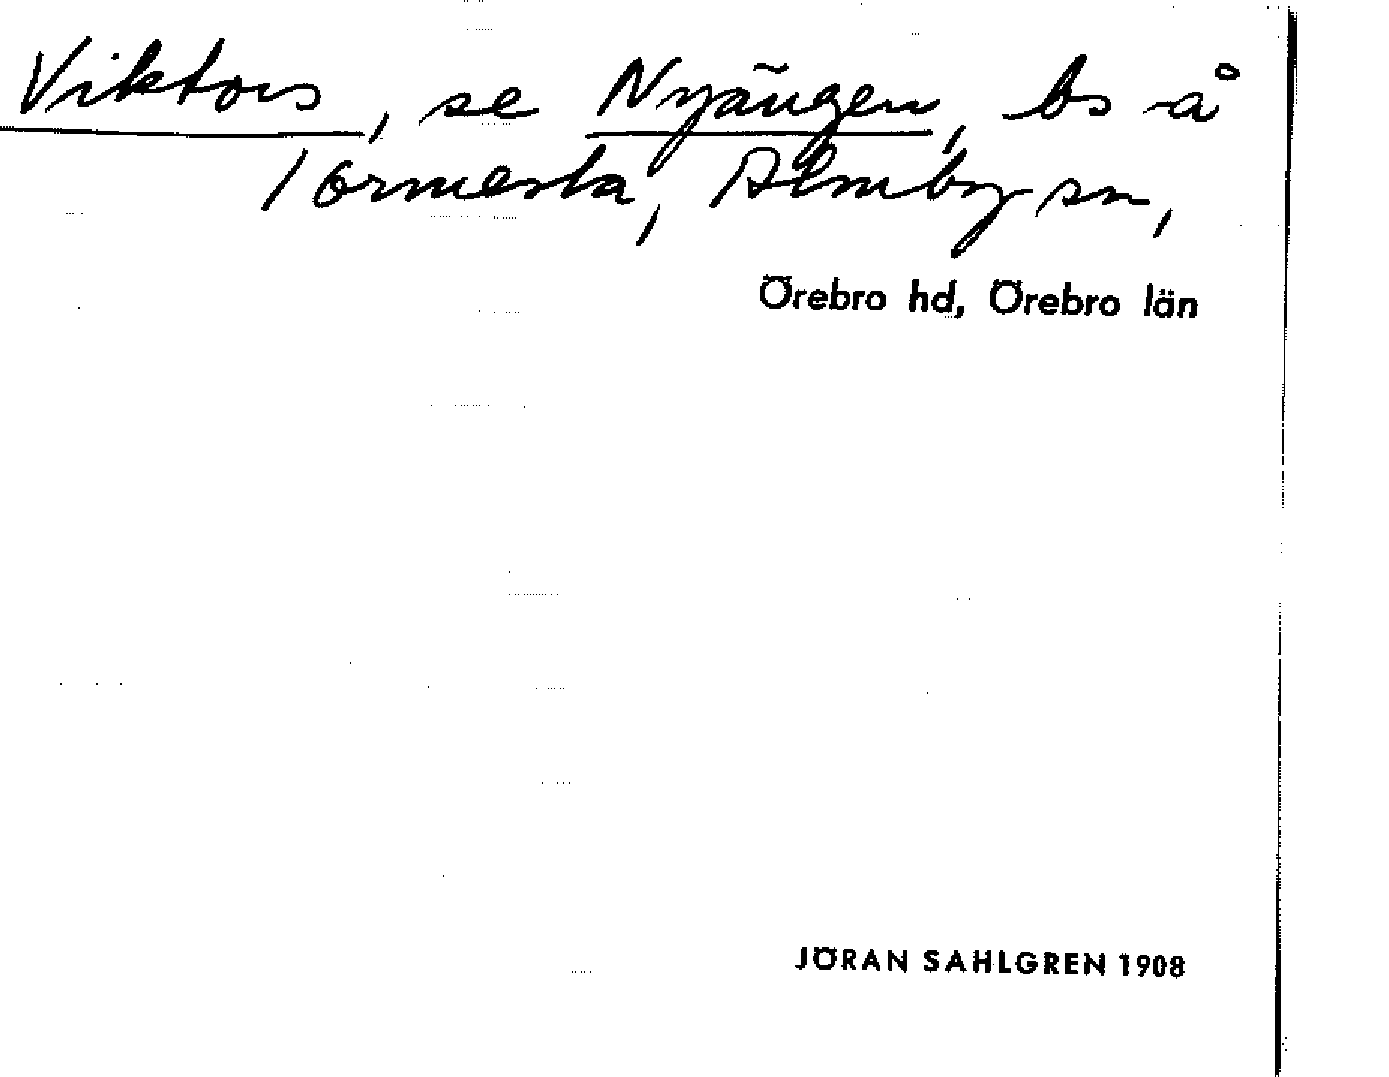 Viktors, se Nyängen, bs å
Tormesta, Almby sn,
Örebro hd, Örebro län
JÖRAN SAHLGREN 1908